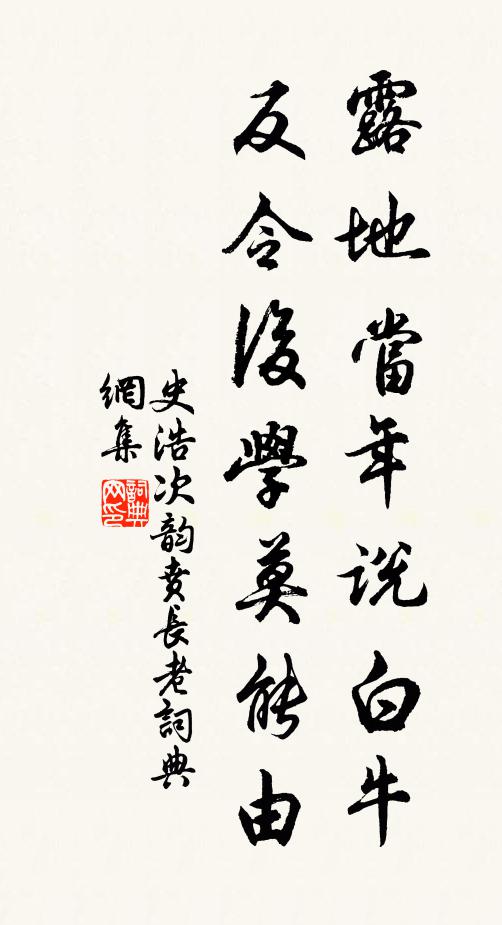 露地當年說白牛
反令後學莫能由
史浩次韵賁長老詞典
網集
詞典
网印